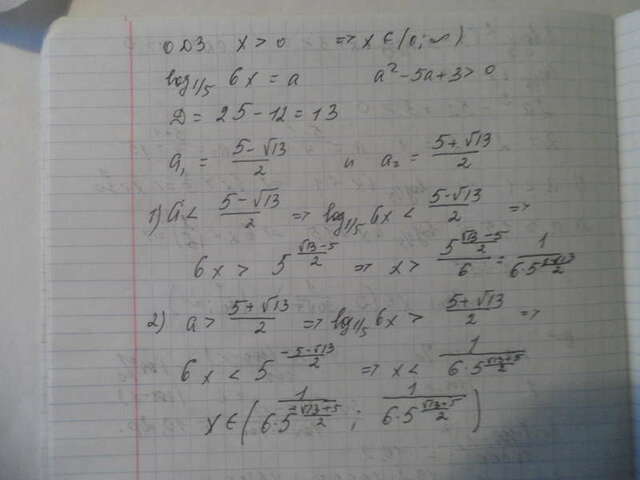 ОДЗ x > 0 => x ∈ (0; ∞)
log₁/₅ 6x = a a² - 5a + 3 > 0
D = 25 - 12 = 13
a₁ = (5 - √13)/2 и a₂ = (5 + √13)/2
1) a < (5 - √13)/2 => log₁/₅ 6x < (5 - √13)/2 =>
6x > 5^((√13 - 5)/2) => x > 5^((√13 - 5)/2)/6 = 1/(6·5^((5 - √13)/2))
2) a > (5 + √13)/2 => log₁/₅ 6x > (5 + √13)/2 =>
6x < 5^((-5 - √13)/2) => x < 1/(6·5^((√13 + 5)/2))
x ∈ (1/(6·5^((√13 + 5)/2)); 1/(6·5^((√13 - 5)/2)))